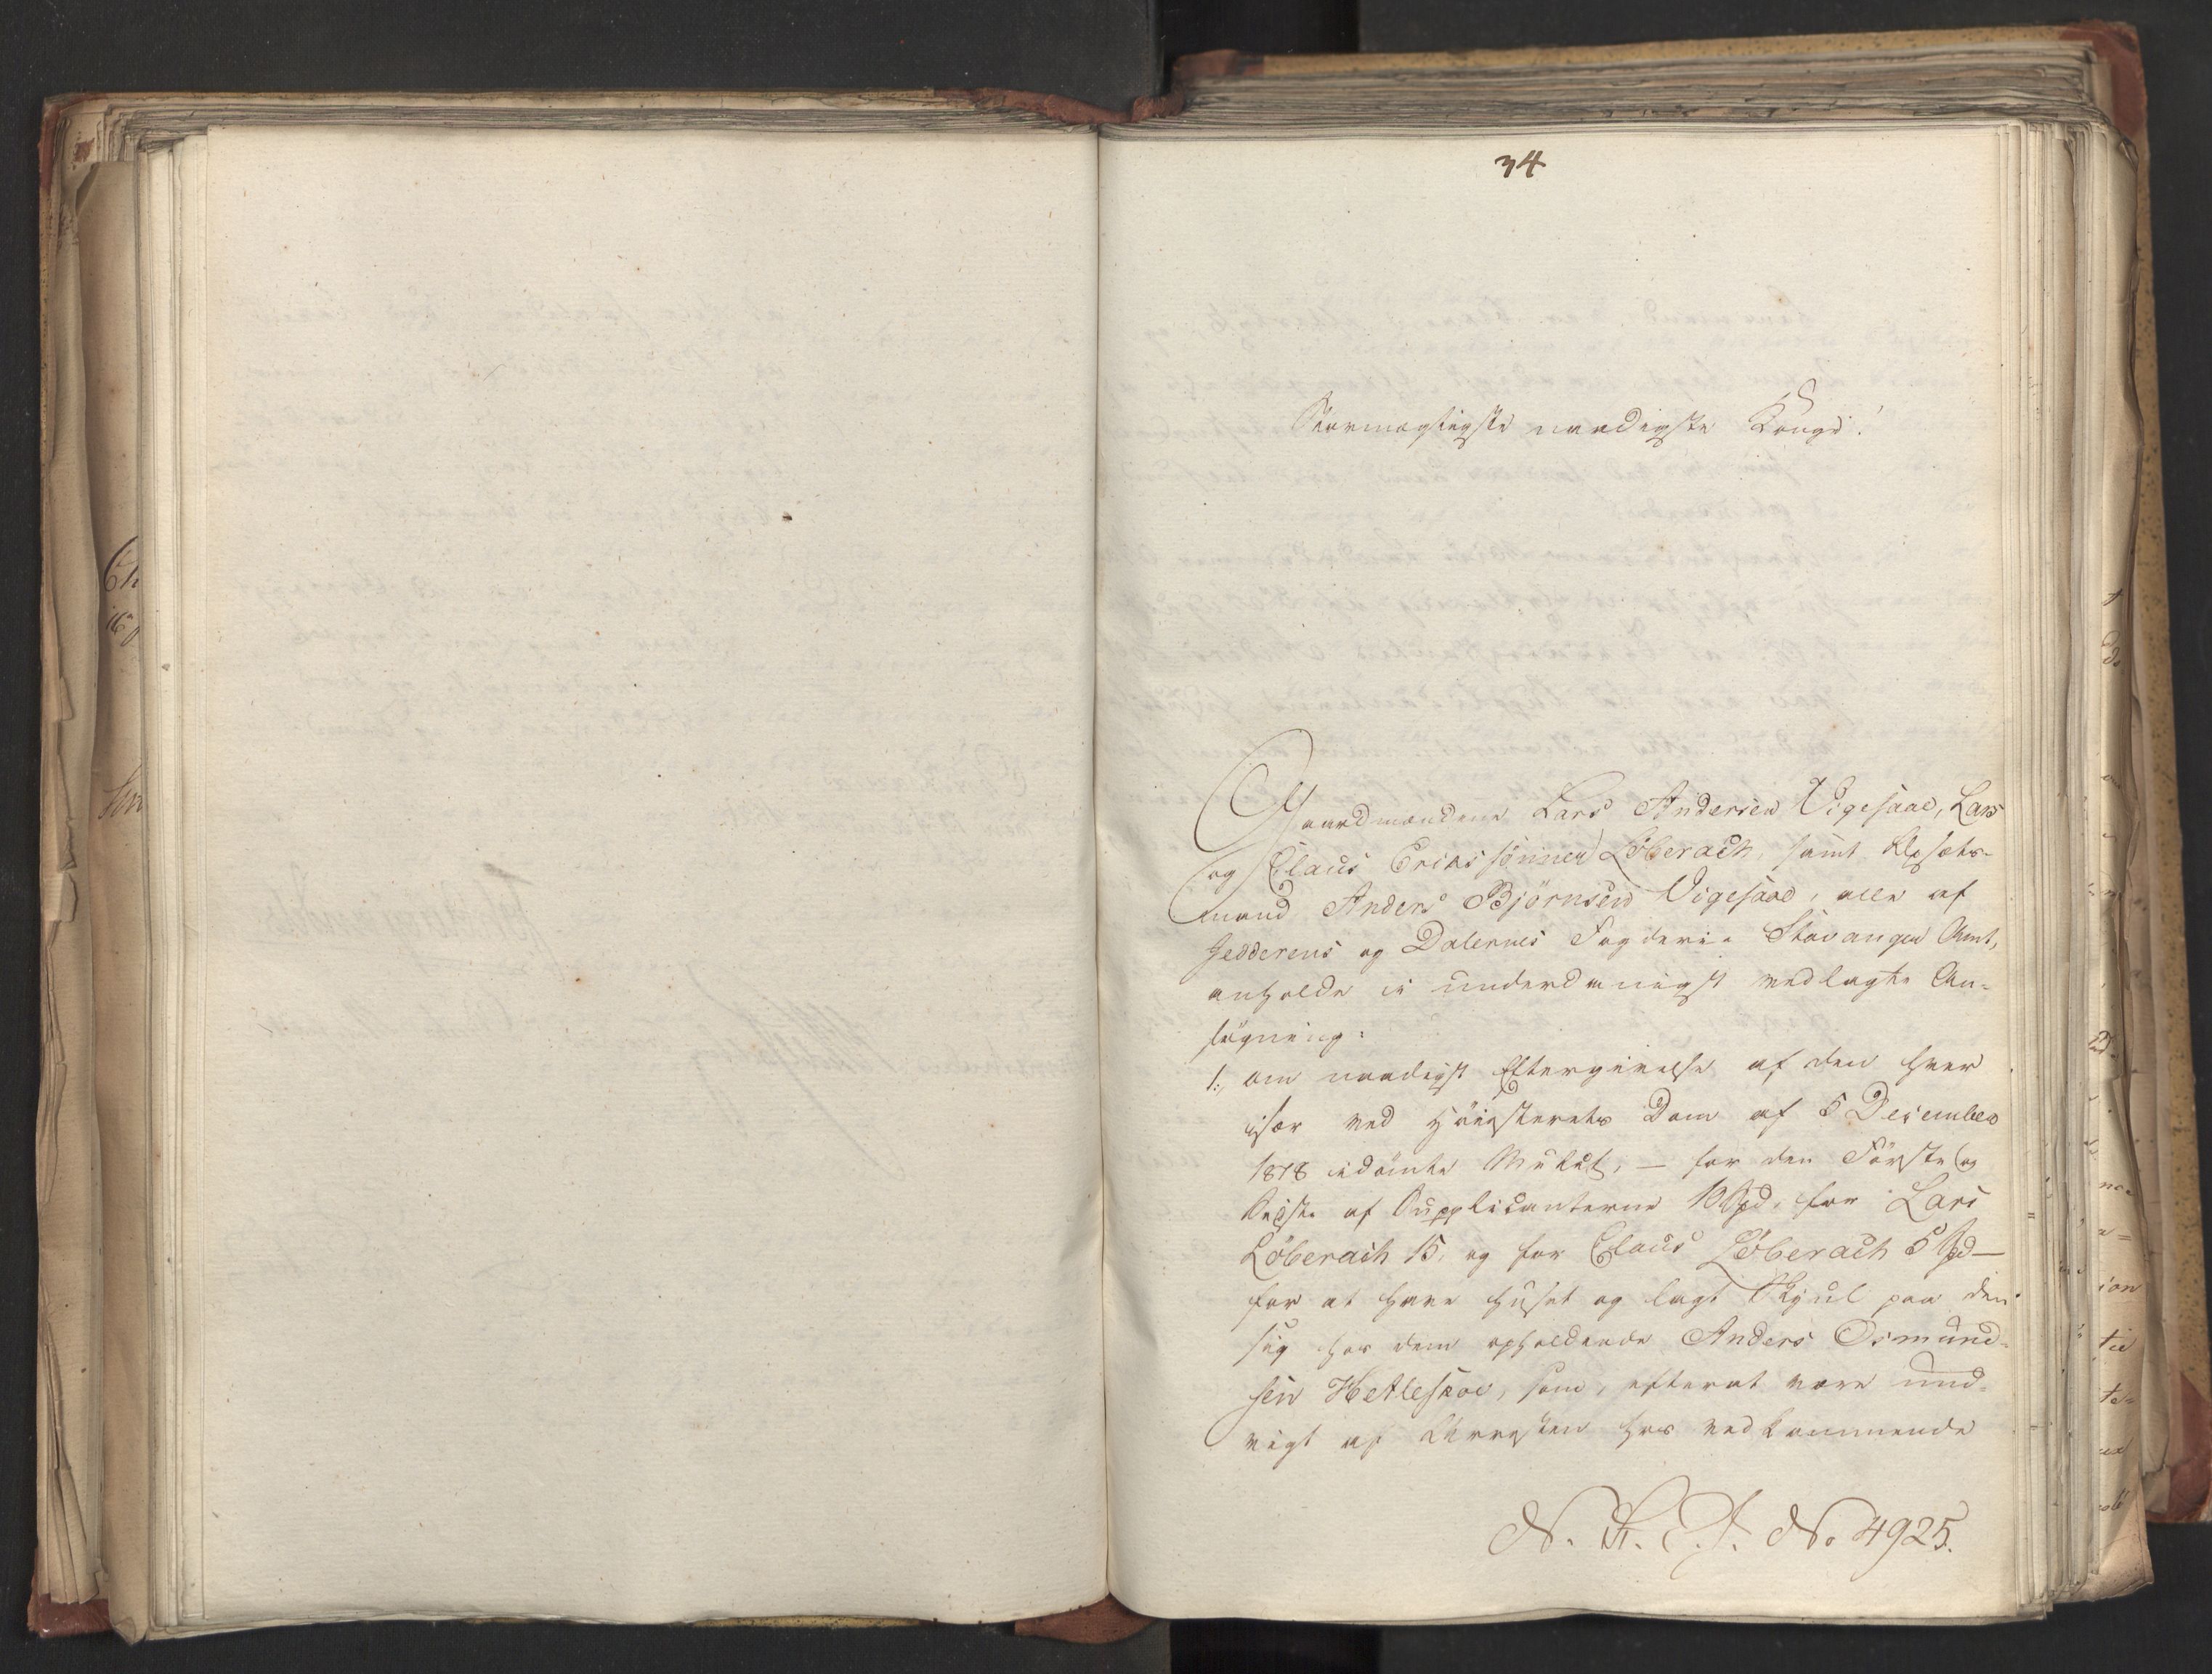 34
Stormægtigste naadigste Konge!
Gaardmændene Lars Andersen Vigesaae, Lars
og Claus Erikssønner Löberach, samt
mand Anders Björnsen Vigesaae, alle af
Jedderens og Dalernes Fogderie Stavanger Amt,
anholde i underdanigst vedlagte An-
søgning:
1, om naadigst Eftergivelse af den hver
især ved Höiesterets Dom af 5 December
1818 idömte Mulct, — for den Förste og
Sidste af Supplicanterne 10 Spd. for Lars
Löberach 15, og for Claus Löberach 5 Spd —
for at have huset og lagt Skjul paa den
sig hos dem opholdende Anders Osmund-
sen Hetlesaae, som, efterat være und-
vigt af Arresten hos vedkommende
N. R. A. No 4925.